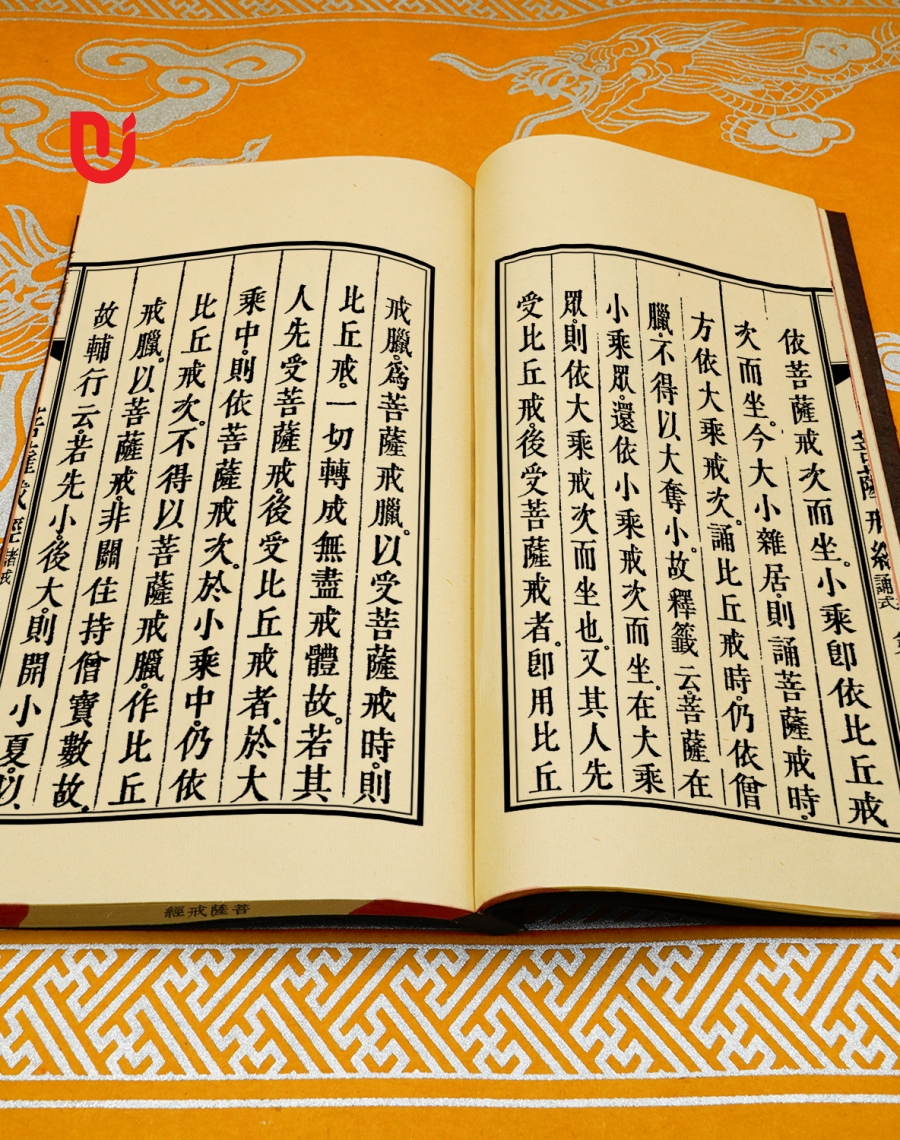 依菩薩戒次而坐。小乘卽依比丘戒
次而坐。今大小雜居。則誦菩薩戒時。
方依大乘戒次。誦比丘戒時。仍依僧
臘。不得以大奪小。故釋籤云。菩薩在
小乘眾。還依小乘戒次而坐。在大乘
眾。則依大乘戒次而坐也。又其人先
受比丘戒。後受菩薩戒者。卽用比丘
戒臘。爲菩薩戒臘。以受菩薩戒時。則
比丘戒。一切轉成無盡戒體故。若其
人先受菩薩戒。後受比丘戒者。於大
乘中。則依菩薩戒次。於小乘中。仍依
比丘戒次。不得以菩薩戒臘。作比丘
戒臘。以菩薩戒。非關住持僧寶數故。
故輔行云。若先小。後大。則開小夏。以
菩薩戒經 誦式
菩薩戒經 諸戒
菩薩戒經